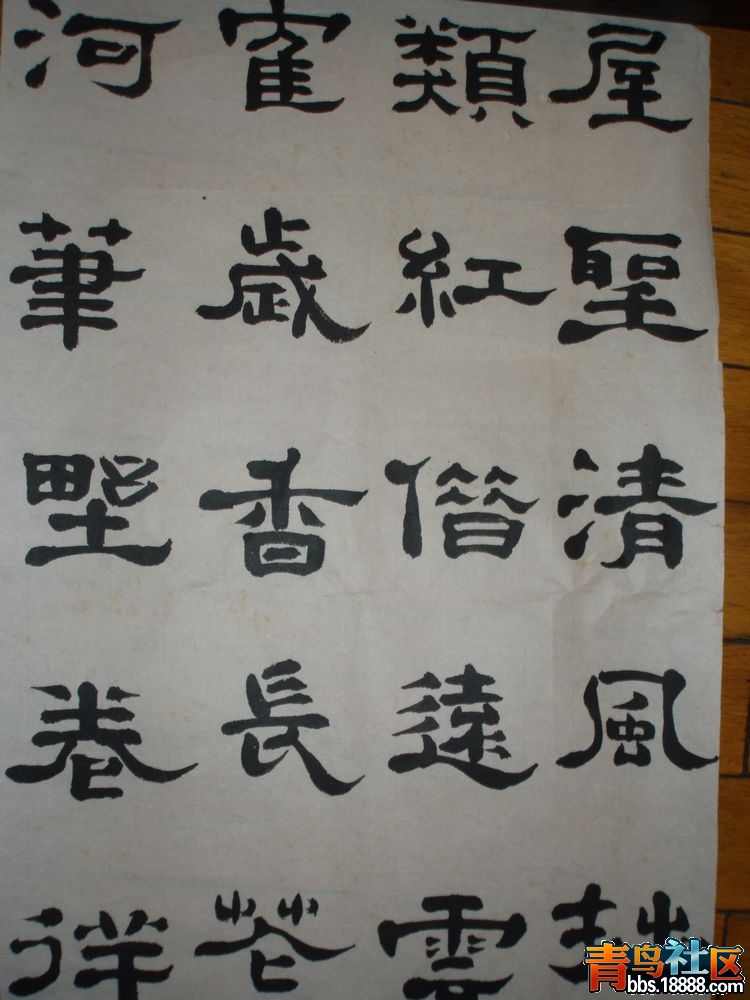 屋聖清風拙
類紅遠雲
寉歲香長花
河筆野卷徉
青鸟社区
bbs.18888.com